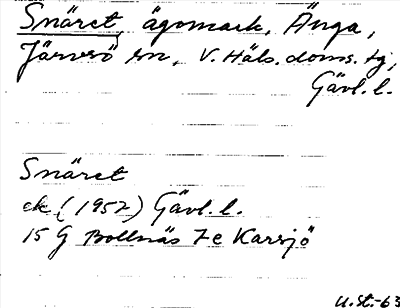 Snäret, ägomark, Änga,
Järvsö sn, V. Häls. doms. tg,
Gävl. l.
Snäret
ek (1957) Gävl. l.
15 G Bollnäs 7e Karsjö
U. St. -63